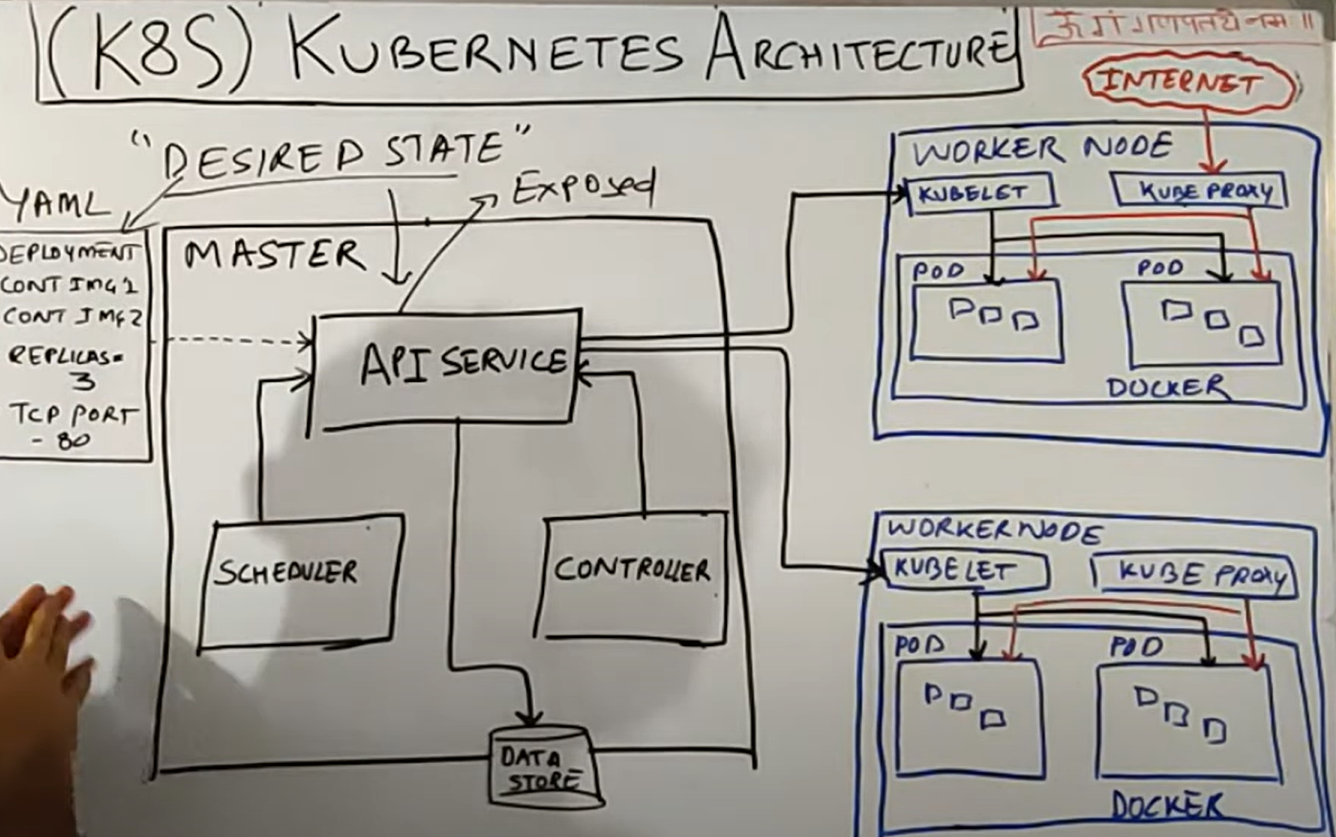 (K8S) KUBERNETES ARCHITECTURE
ॐ गं गणपतये नमः ॥
INTERNET
"DESIRED STATE"
Exposed
YAML
DEPLOYMENT
CONT IMG 1
CONT IMG 2
REPLICAS=
3
TCP PORT
- 80
MASTER
API SERVICE
SCHEDULER
CONTROLLER
DATA
STORE
WORKER NODE
KUBELET
KUBE PROXY
POD
POD
DOCKER
WORKER NODE
KUBELET
KUBE PROXY
POD
POD
DOCKER